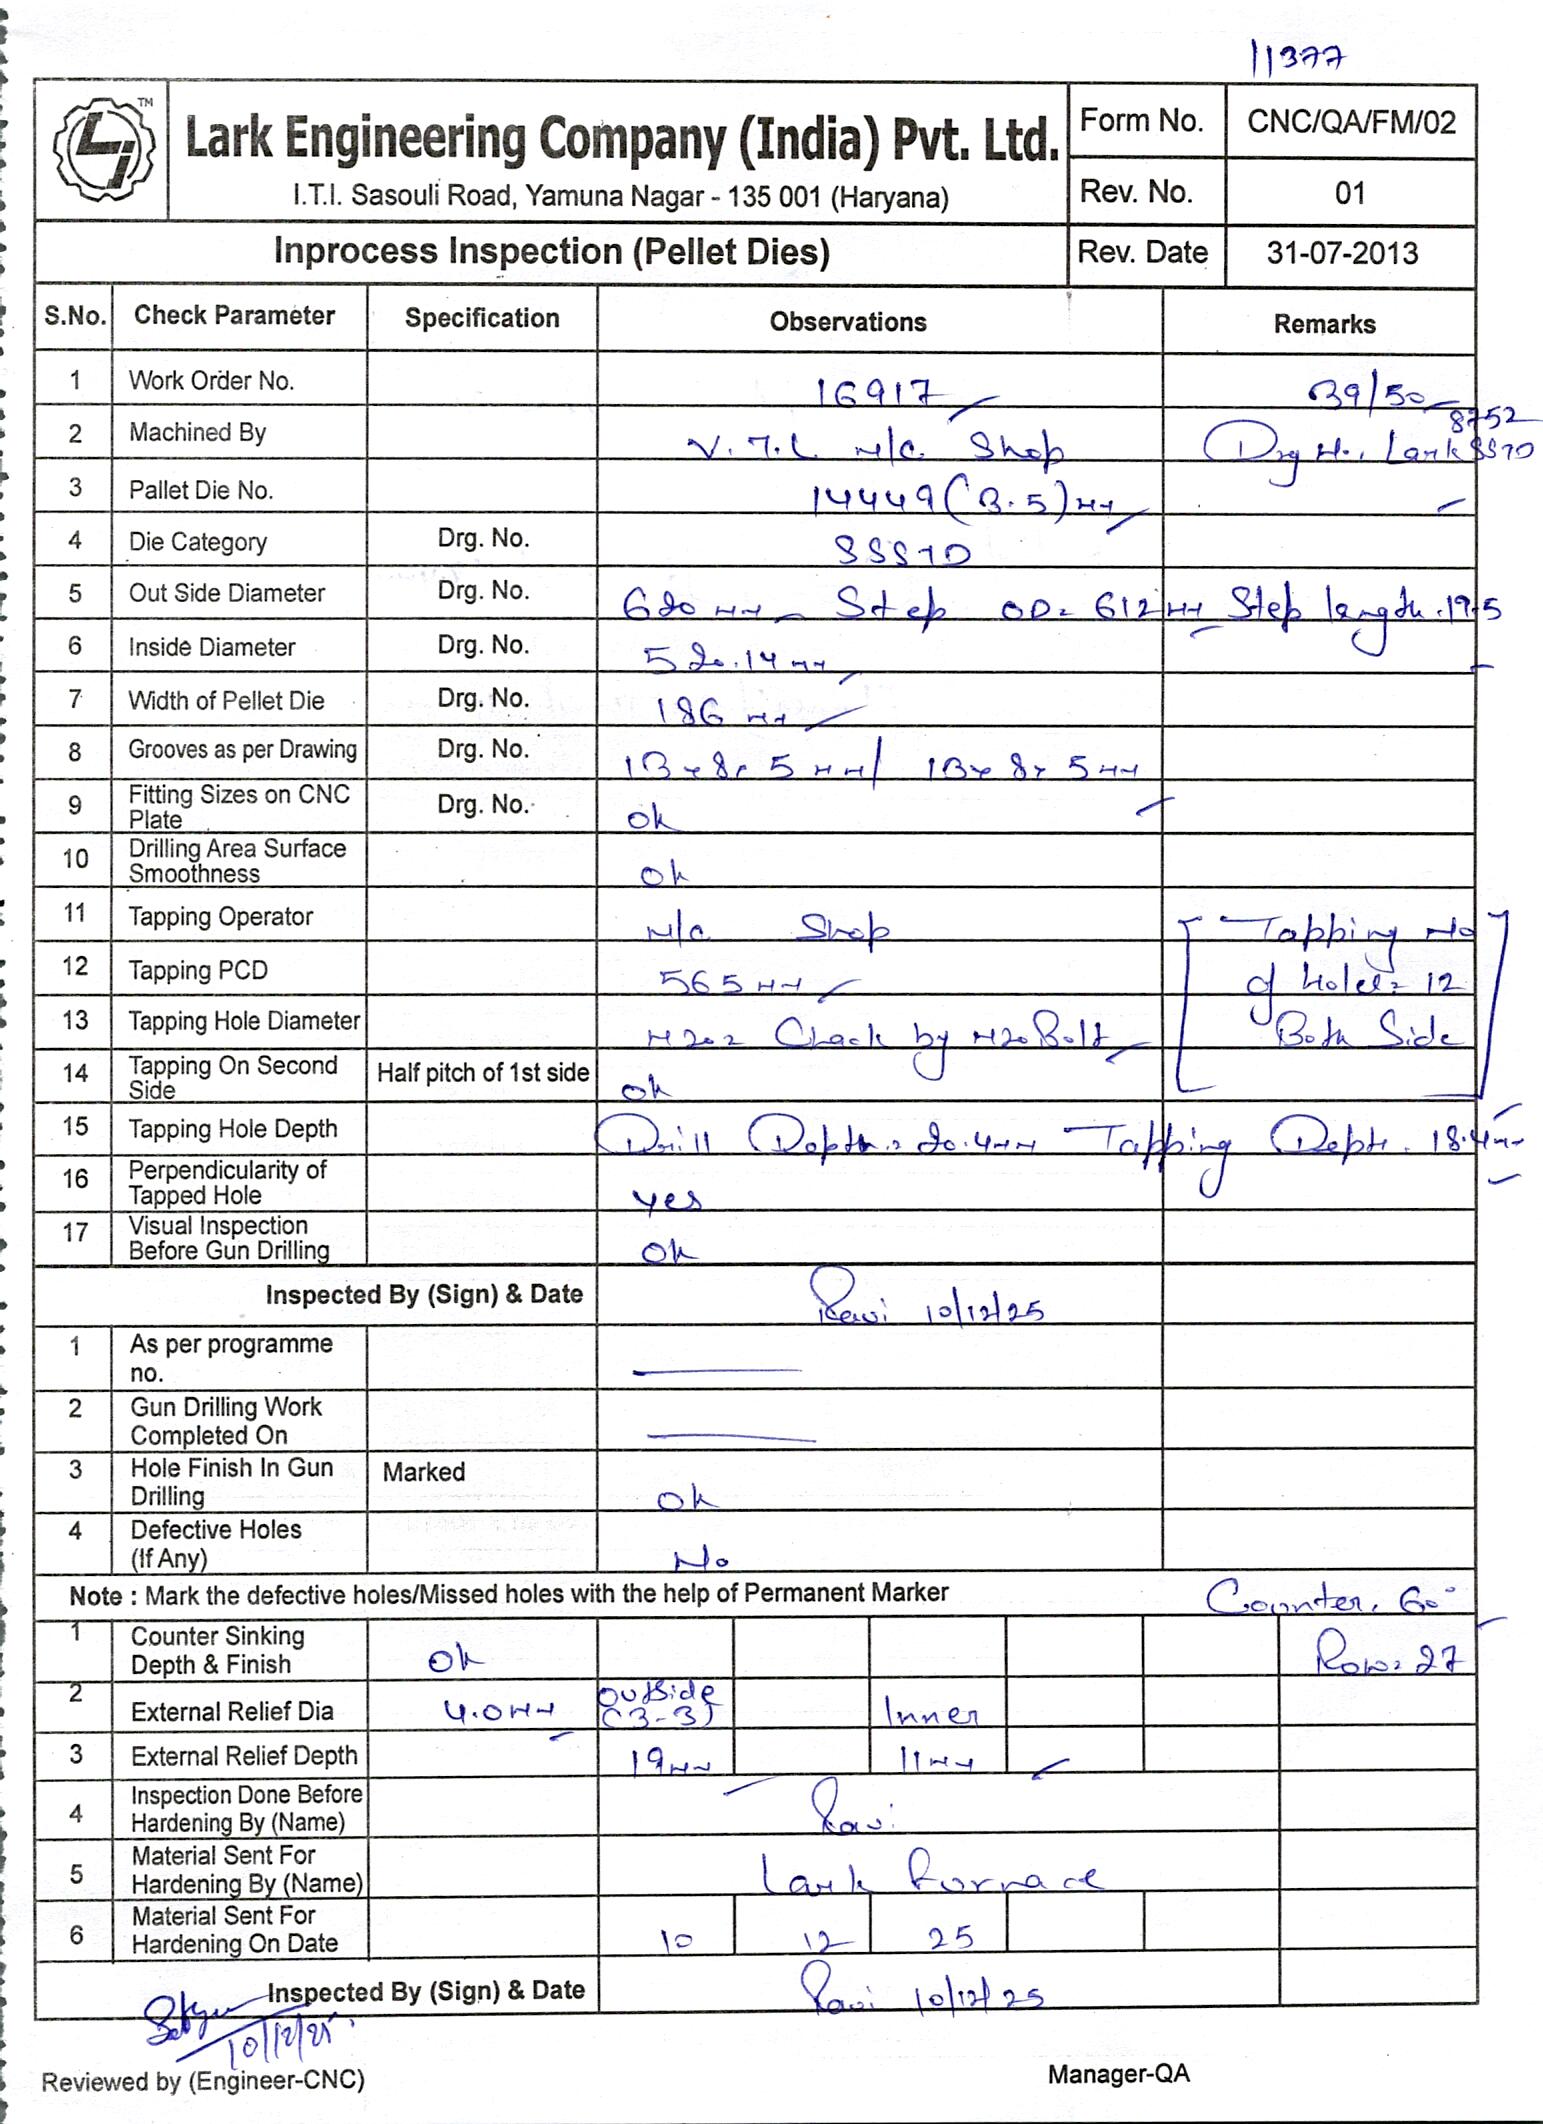 11377
LJ TM
Lark Engineering Company (India) Pvt. Ltd.
I.T.I. Sasouli Road, Yamuna Nagar - 135 001 (Haryana)
Form No. CNC/QA/FM/02
Rev. No. 01
Inprocess Inspection (Pellet Dies) Rev. Date 31-07-2013
S.No. Check Parameter Specification Observations Remarks
1 Work Order No. 16917 39/50
2 Machined By V.T.L M/C Shop Drg No. Lark 8752 SSTD
3 Pallet Die No. 14449 (3.5) MM
4 Die Category Drg. No. SSSTD
5 Out Side Diameter Drg. No. 620 MM Step OD= 612 MM Step length. 19.5
6 Inside Diameter Drg. No. 520.14 MM
7 Width of Pellet Die Drg. No. 186 MM
8 Grooves as per Drawing Drg. No. 13x8x5 MM/ 13x8x5 MM
9 Fitting Sizes on CNC Plate Drg. No. Ok
10 Drilling Area Surface Smoothness Ok
11 Tapping Operator M/C Shop Tapping No
12 Tapping PCD 565 MM of Holes= 12
13 Tapping Hole Diameter M20= Check by M20 Bolt Both Side
14 Tapping On Second Side Half pitch of 1st side Ok
15 Tapping Hole Depth Drill Depth= 20.4 MM Tapping Depth. 18.4 MM
16 Perpendicularity of Tapped Hole Yes
17 Visual Inspection Before Gun Drilling Ok
Inspected By (Sign) & Date Ravi 10/12/25
1 As per programme no.
2 Gun Drilling Work Completed On
3 Hole Finish In Gun Drilling Marked Ok
4 Defective Holes (If Any) No
Note : Mark the defective holes/Missed holes with the help of Permanent Marker Counter. 60°
1 Counter Sinking Depth & Finish Ok Row= 27
2 External Relief Dia 4.0 MM Outside (3-3) Inner
3 External Relief Depth 19 MM 11 MM
4 Inspection Done Before Hardening By (Name) Ravi
5 Material Sent For Hardening By (Name) Lark Furnace
6 Material Sent For Hardening On Date 10 12 25
Inspected By (Sign) & Date Ravi 10/12/25
10/12/25
Reviewed by (Engineer-CNC) Manager-QA